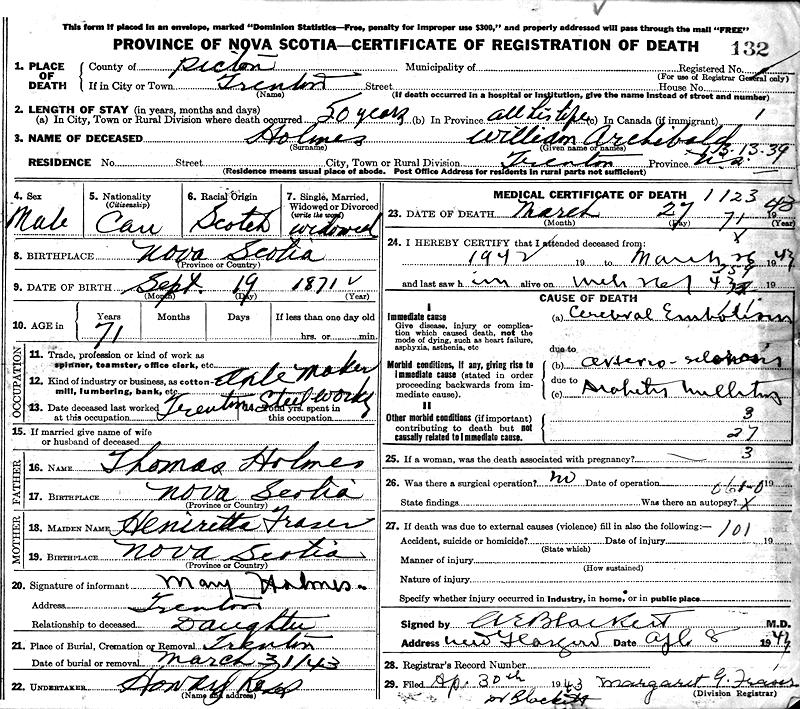 This form if placed in an envelope, marked "Dominion Statistics—Free, penalty for improper use $300," and properly addressed will pass through the mail "FREE"
PROVINCE OF NOVA SCOTIA—CERTIFICATE OF REGISTRATION OF DEATH 132
1. PLACE OF DEATH
County of Pictou Municipality of Registered No.
(For use of Registrar General only)
If in City or Town Trenton Street House No.
(Name) (If death occurred in a hospital or institution, give the name instead of street and number)
2. LENGTH OF STAY (in years, months and days)
(a) In City, Town or Rural Division where death occurred 50 years (b) In Province all his life (c) In Canada (if immigrant) 1
3. NAME OF DECEASED Holmes William Archibald
(Surname) (Given name or names)
13-39
RESIDENCE No. Street City, Town or Rural Division Trenton Province N.S.
(Residence means usual place of abode. Post Office Address for residents in rural parts not sufficient)
4. Sex
Male
5. Nationality
(Citizenship)
Can
6. Racial Origin
Scotch
7. Single, Married, Widowed or Divorced
(write the word)
Widowed
8. BIRTHPLACE Nova Scotia
(Province or Country)
9. DATE OF BIRTH Sept. 19 1871
(Month) (Day) (Year)
10. AGE in
Years 71
Months
Days
If less than one day old
hrs. or min.
OCCUPATION
11. Trade, profession or kind of work as spinner, teamster, office clerk, etc.
Axle Maker
12. Kind of industry or business, as cotton-mill, lumbering, bank, etc.
Trenton Steel Works
13. Date deceased last worked at this occupation
Total yrs. spent in this occupation
15. If married give name of wife or husband of deceased
FATHER
16. NAME Thomas Holmes
17. BIRTHPLACE Nova Scotia
(Province or Country)
MOTHER
18. MAIDEN NAME Henrietta Fraser
19. BIRTHPLACE Nova Scotia
(Province or Country)
20. Signature of informant Mary Holmes.
Address Trenton
Relationship to deceased Daughter
21. Place of Burial, Cremation or Removal Trenton
Date of burial or removal March 31/43
22. UNDERTAKER
(Name and address)
MEDICAL CERTIFICATE OF DEATH 1123
23. DATE OF DEATH March 27 19 43
(Month) (Day) (Year)
71
24. I HEREBY CERTIFY that I attended deceased from:
1942 19 to March 26 1943
259
and last saw h im alive on 19
CAUSE OF DEATH
I
Immediate cause
Give disease, injury or complication which caused death, not the mode of dying, such as heart failure, asphyxia, asthenia, etc
(a) Cerebral Embolism
due to
Morbid conditions, if any, giving rise to immediate cause (stated in order proceeding backwards from immediate cause).
(b) arterio-sclerosis
due to
(c) Diabetes Mellitus
II
Other morbid conditions (if important) contributing to death but not causally related to immediate cause.
3
27
25. If a woman, was the death associated with pregnancy? 3
26. Was there a surgical operation? no Date of operation 19
State findings Was there an autopsy? X
27. If death was due to external causes (violence) fill in also the following:— 101
Accident, suicide or homicide? Date of injury 19
(State which)
Manner of injury
(How sustained)
Nature of injury
Specify whether injury occurred in industry, in home, or in public place
Signed by M.D.
Address New Glasgow Date Apl. 8 19
28. Registrar's Record Number
29. Filed Ap. 30th 1943 Margaret G. Fraser
(Division Registrar)